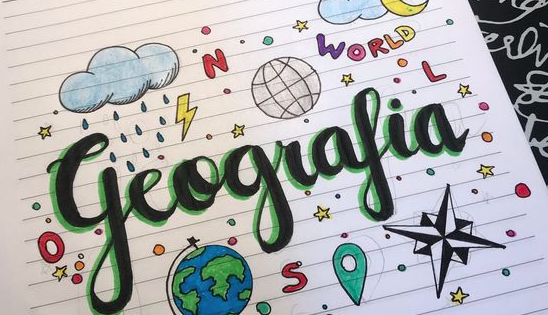 N
WORLD
L
Geografia
O
S